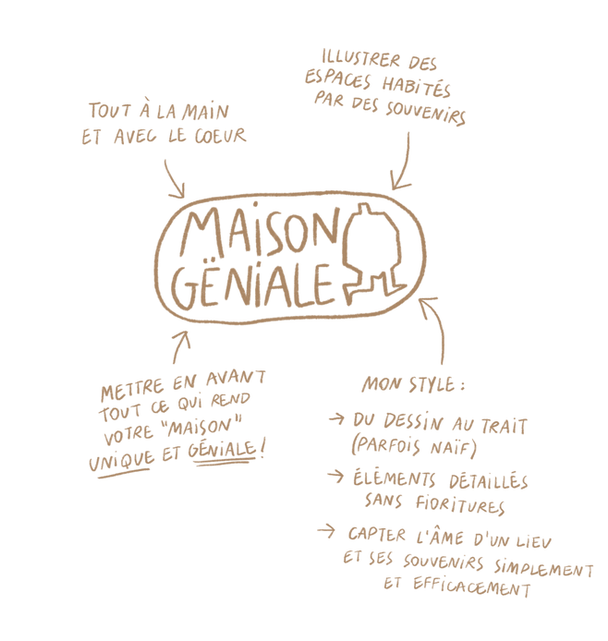 ILLUSTRER DES
ESPACES HABITÉS
PAR DES SOUVENIRS
TOUT À LA MAIN
ET AVEC LE COEUR
MAISON
GËNIALE
METTRE EN AVANT
TOUT CE QUI REND
VOTRE "MAISON"
UNIQUE ET GÉNIALE !
MON STYLE :
→ DU DESSIN AU TRAIT
(PARFOIS NAÏF)
→ ÉLÉMENTS DÉTAILLÉS
SANS FIORITURES
→ CAPTER L'ÂME D'UN LIEU
ET SES SOUVENIRS SIMPLEMENT
ET EFFICACEMENT